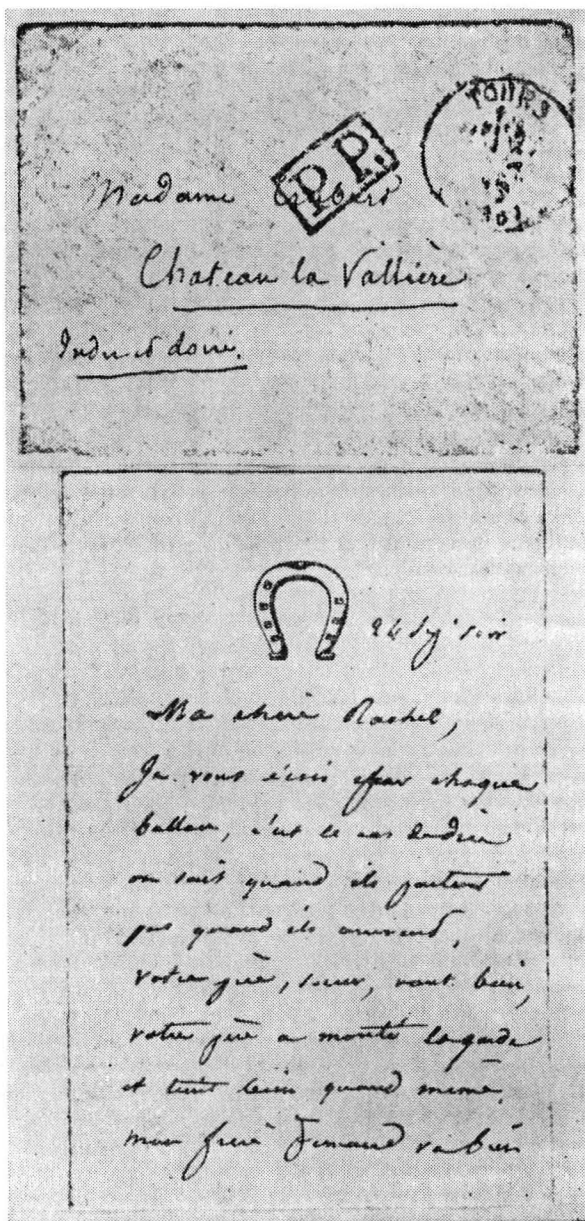 TOURS
P.P.
Madame
Chateau la Vallière
Indre et Loire.
24 7bre soir
Ma chère Rachel,
Je vous écris par chaque
ballon, c'est le cas de dire
on sait quand ils partent
pas quand ils arrivent,
votre père, sœur, vont bien,
votre père a monté la garde
et tient bien quand même,
mon frère Fernand va bien